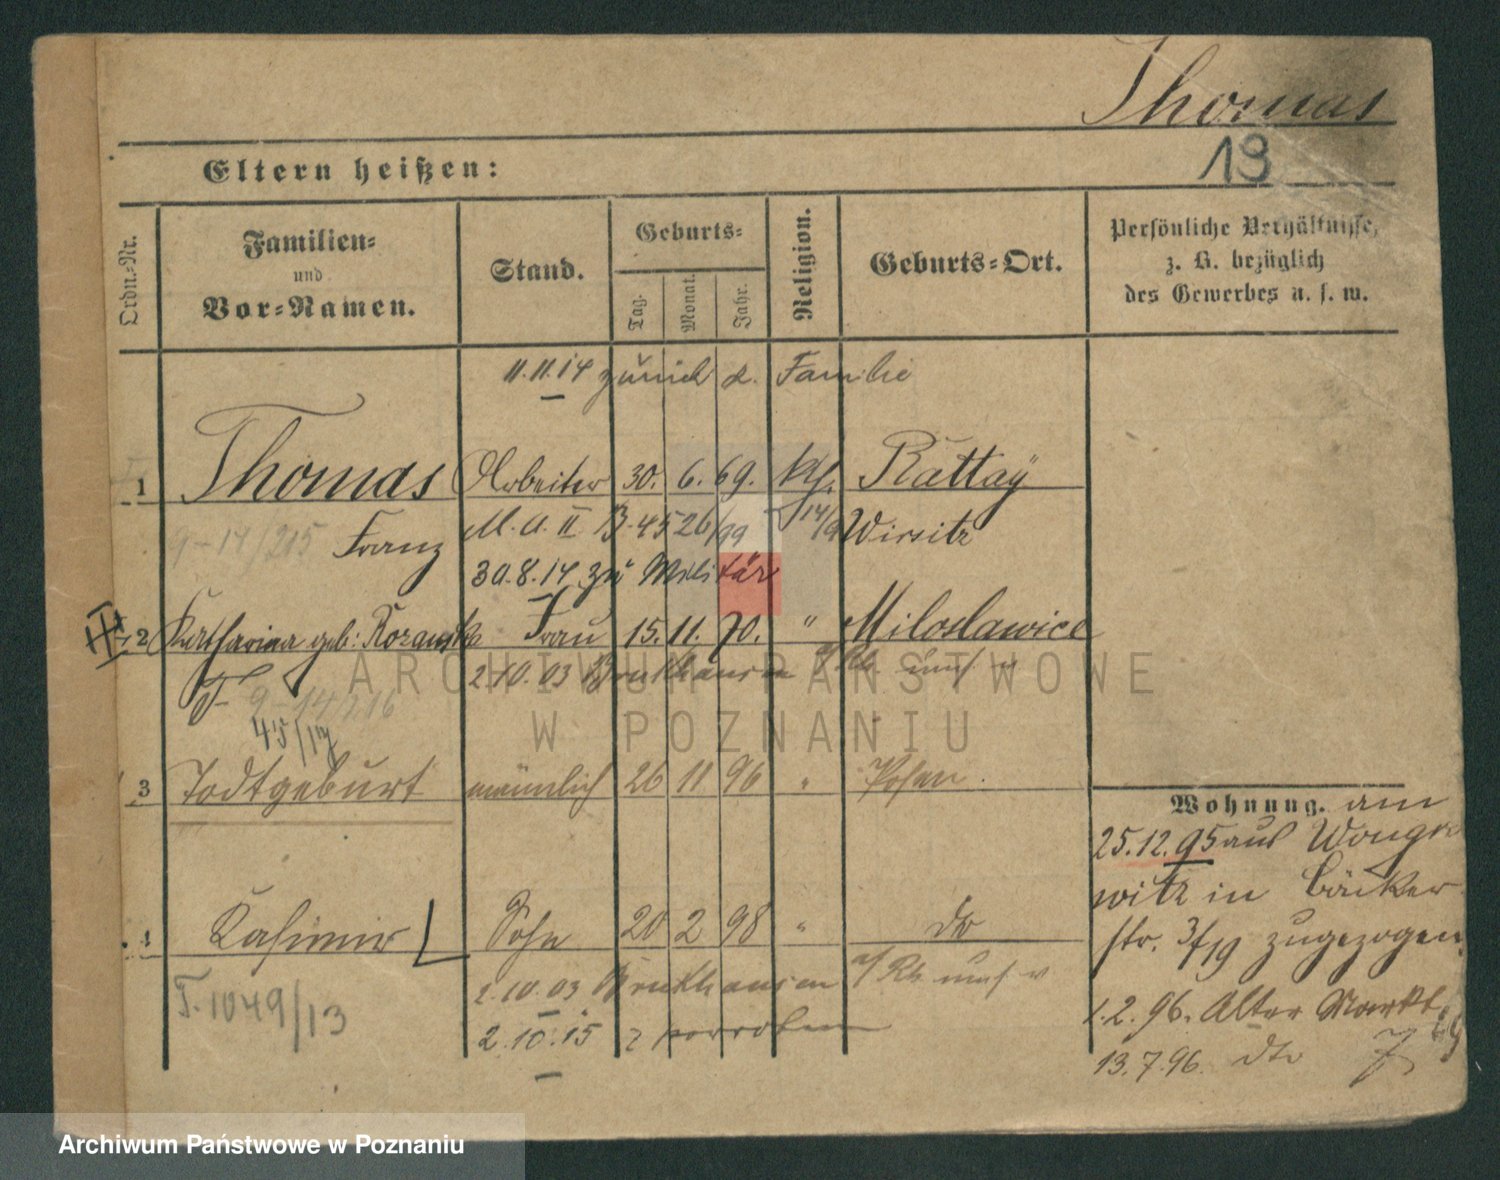 Thomas
19
Eltern heißen:
Ordn.-Nr.
Familien-
und
Vor-Namen.
Stand.
Geburts-
Tag.
Monat.
Jahr.
Religion.
Geburts-Ort.
Persönliche Verhältnisse,
z. B. bezüglich
des Gewerbes u. s. w.
11.11.14 zurück z. Familie
1 Thomas Arbeiter 30. 6. 69. kth. Rattay
9-14/215 Franz M. A. II B. 4526/99 Wirsitz
30.8.14 zu Militär
2 Katharina geb: Rozanska Frau 15. 11. 70. " Miloslawice
2.10.03
T 9-14/216
45/17
3 Todtgeburt männlich 26 11 96 " Posen.
4 Kasimir Sohn 20 2 98 " do
2.10.03
T. 1049/13
2.10.15
Wohnung. am
25.12.95 aus Wongro-
witz in Bäcker
str. 3/19 zugezogen.
1.2.96. Alter Markt 69
13.7.96. dto 7
ARCHIWUM PAŃSTWOWE
W POZNANIU
Archiwum Państwowe w Poznaniu